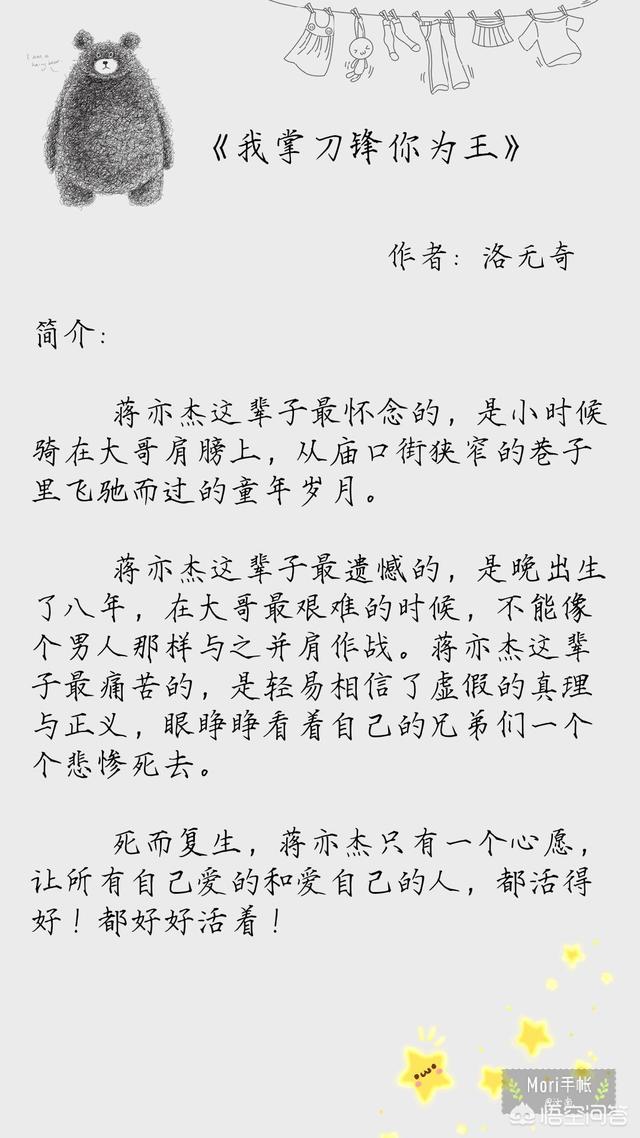 I am a
hairy bear
《我掌刀锋你为王》
作者：洛无奇
简介：
蒋亦杰这辈子最怀念的，是小时候
骑在大哥肩膀上，从庙口街狭窄的巷子
里飞驰而过的童年岁月。
蒋亦杰这辈子最遗憾的，是晚出生
了八年，在大哥最艰难的时候，不能像
个男人那样与之并肩作战。蒋亦杰这辈
子最痛苦的，是轻易相信了虚假的真理
与正义，眼睁睁看着自己的兄弟们一个
个悲惨死去。
死而复生，蒋亦杰只有一个心愿，
让所有自己爱的和爱自己的人，都活得
好！都好好活着！
Mori手帐
悟空问答